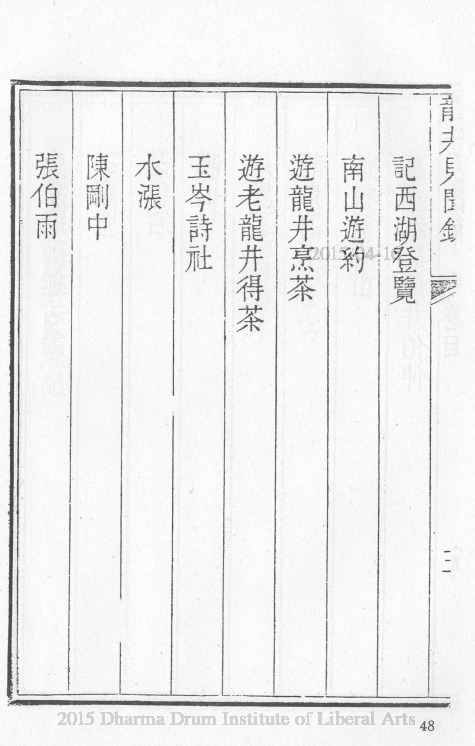 龍井見聞錄
記西湖登覽
南山遊約
遊龍井烹茶
遊老龍井得茶
玉岑詩社
水漲
陳剛中
張伯雨
2015 Dharma Drum Institute of Liberal Arts
48